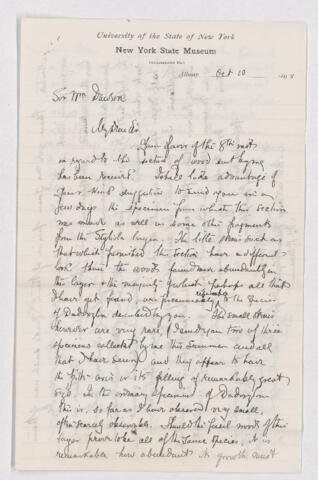 University of the State of New York
New York State Museum
Albany Oct 10
Sir Wm Dawson
My Dear Sir
Your favor of the 8th inst
in regard to the section of wood sent by me
has been received. I shall take advantage of
your kind suggestion to send you in a
few days the specimen from which this section
was made as well as some other fragments
from the Styliola layer. The little stems such as
that which furnished the section have a different
look than the woods found more abundantly in
the layer & the majority perhaps all that
I have yet found, are presumably to the species
of Dadoxylon described by you. The small stems
however are very rare, I send you two or three
specimens collected by me this Summer and all
that I have seen and they appear to have
the pith axis or its filling of remarkably great
size. In the ordinary specimens of Dadoxylon
this is, so far as I have observed very small,
often scarcely observable. Should the fossil woods of this
layer prove to be all of the same species, it is
remarkable how abundant its growth must